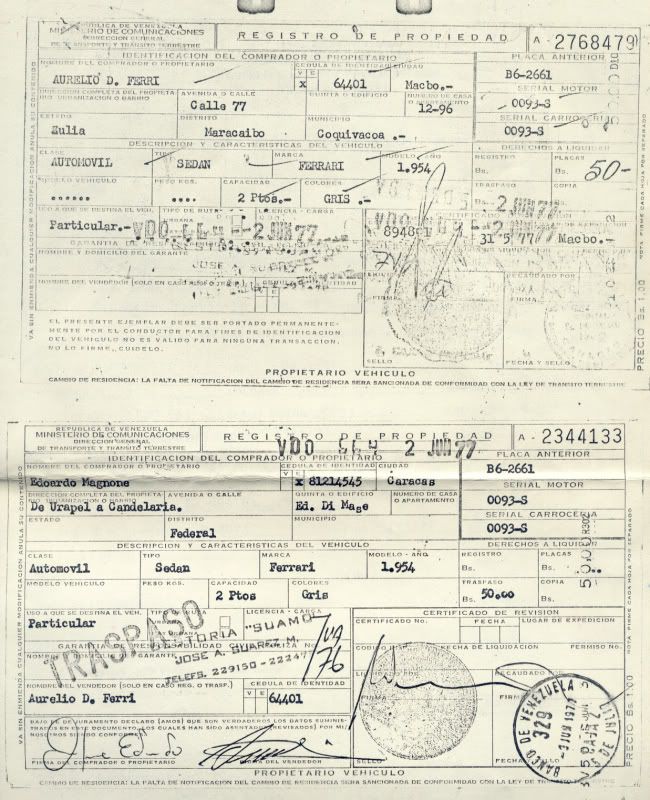 REPUBLICA DE VENEZUELA
MINISTERIO DE COMUNICACIONES
DIRECCION GENERAL
DE TRANSPORTE Y TRANSITO TERRESTRE
REGISTRO DE PROPIEDAD
A - 2768479
IDENTIFICACION DEL COMPRADOR O PROPIETARIO
PLACA ANTERIOR
NOMBRE DEL COMPRADOR O PROPIETARIO
CEDULA DE IDENTIDAD
CIUDAD
V E
AURELIO D. FERRI
x 64401
Macbo.-
B6-2661
DIRECCION COMPLETA DEL PROPIETA
RIO URBANIZACION O BARRIO
AVENIDA O CALLE
QUINTA O EDIFICIO
NUMERO DE CASA
O APARTAMENTO
SERIAL MOTOR
Calle 77
12-96
0093-S
ESTADO
DISTRITO
MUNICIPIO
SERIAL CARROCERIA
Zulia
Maracaibo
Coquivacoa .-
0093-S
DESCRIPCION Y CARACTERISTICAS DEL VEHICULO
DERECHOS A LIQUIDAR
CLASE
TIPO
MARCA
MODELO - AÑO
REGISTRO
PLACAS
AUTOMOVIL
SEDAN
FERRARI
1.954
Bs.
Bs.
50-
MODELO VEHICULO
PESO KGS.
CAPACIDAD
COLORES
TRASPASO
COPIA
2 Ptos.-
GRIS .-
Bs.
Bs.
2 JUN 77
USO A QUE SE DESTINA EL VEH.
TIPO DE RUTA
LICENCIA - CARGA
Particular.-
VDO
2 JUN 77
VDO
2 JUN 77
89480
31 5 77
Macbo.-
GARANTIA DE
NOMBRE Y DOMICILIO DEL GARANTE
JOSE A. SUAREZ
RECAUDADO POR
NOMBRE DEL VENDEDOR (SOLO EN CASO REG. O TRASP.)
V E
FIRMA
FIRMA
EL PRESENTE EJEMPLAR DEBE SER PORTADO PERMANENTE-
MENTE POR EL CONDUCTOR PARA FINES DE IDENTIFICACION
DEL VEHICULO NO ES VALIDO PARA NINGUNA TRANSACCION,
NO LO FIRME, CUIDELO.
SELLO
FECHA Y SELLO
PROPIETARIO VEHICULO
CAMBIO DE RESIDENCIA: LA FALTA DE NOTIFICACION DEL CAMBIO DE RESIDENCIA SERA SANCIONADA DE CONFORMIDAD CON LA LEY DE TRANSITO TERRESTRE
VA SIN ENMIENDA CUALQUIER MODIFICACION ANULA SU CONTENIDO
NOTA FIRME CADA HOJA POR SEPARADO
PRECIO Bs. 1,00
REPUBLICA DE VENEZUELA
MINISTERIO DE COMUNICACIONES
DIRECCION GENERAL
DE TRANSPORTE Y TRANSITO TERRESTRE
REGISTRO DE PROPIEDAD
A - 2344133
VDO
2 JUN 77
IDENTIFICACION DEL COMPRADOR O PROPIETARIO
PLACA ANTERIOR
NOMBRE DEL COMPRADOR O PROPIETARIO
CEDULA DE IDENTIDAD
CIUDAD
V E
B6-2661
Edoardo Magnone
x 81214545
Caracas
SERIAL MOTOR
DIRECCION COMPLETA DEL PROPIETA
RIO URBANIZACION O BARRIO
AVENIDA O CALLE
QUINTA O EDIFICIO
NUMERO DE CASA
O APARTAMENTO
De Urapel a Candelaria.
Ed. Di Mase
0093-S
ESTADO
DISTRITO
MUNICIPIO
SERIAL CARROCERIA
Federal
0093-S
DESCRIPCION Y CARACTERISTICAS DEL VEHICULO
DERECHOS A LIQUIDAR
CLASE
TIPO
MARCA
MODELO - AÑO
REGISTRO
PLACAS
Automovil
Sedan
Ferrari
1.954
Bs.
Bs.
MODELO VEHICULO
PESO KGS.
CAPACIDAD
COLORES
TRASPASO
COPIA
2 Ptos
Gris
Bs. 50.00
Bs.
USO A QUE SE DESTINA EL VEH.
LICENCIA - CARGA
CERTIFICADO DE REVISION
Particular
CERTIFICADO No.
FECHA
LUGAR DE EXPEDICION
TRASPASO
GESTORIA "SUAMO"
JOSE A. SUAREZ M.
TELEFS. 229150 - 22247
76
PERMISO No.
NOMBRE DEL VENDEDOR (SOLO EN CASO REG. O TRASP.)
CEDULA DE IDENTIDAD
V E
Aurelio D. Ferri
64401
RECAUDADO POR
FIRMA
FIRMA
BANCO DE VENEZUELA
329
3 JUN 1977
CAJA 2
BAJO DE JURAMENTO DECLARO (AMOS) QUE SON VERDADEROS LOS DATOS SUMINIS-
TRADOS EN ESTE DOCUMENTO LOS CUALES HAN SIDO ASENTADOS (REVISADOS) POR MI/
NOSOTROS
FIRMA DEL COMPRADOR
FIRMA DEL VENDEDOR
SELLO
FECHA Y SELLO
PROPIETARIO VEHICULO
CAMBIO DE RESIDENCIA: LA FALTA DE NOTIFICACION DEL CAMBIO DE RESIDENCIA SERA SANCIONADA DE CONFORMIDAD CON LA LEY DE TRANSITO TERRESTRE
VA SIN ENMIENDA CUALQUIER MODIFICACION ANULA SU CONTENIDO
NOTA FIRME CADA HOJA POR SEPARADO
PRECIO Bs. 1,00